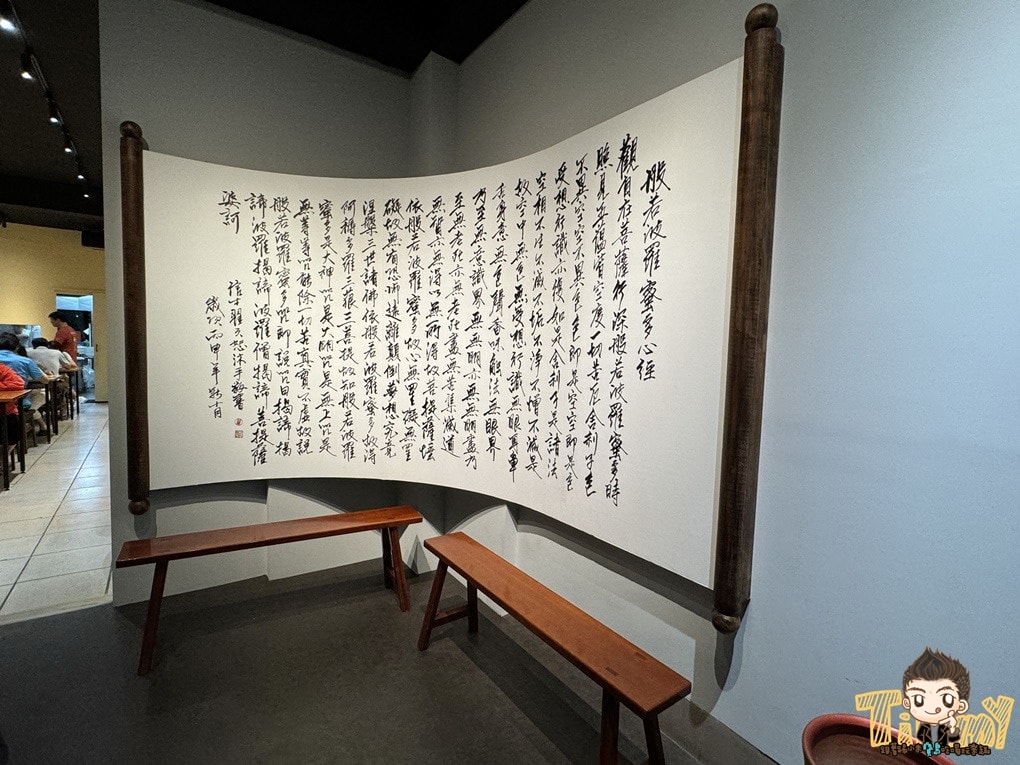 般若波羅蜜多心經
觀自在菩薩行深般若波羅蜜多時
照見五蘊皆空度一切苦厄舍利子色
不異空空不異色色即是空空即是色
受想行識亦復如是舍利子是諸法
空相不生不滅不垢不淨不增不減是
故空中無色無受想行識無眼耳鼻
舌身意無色聲香味觸法無眼界
乃至無意識界無無明亦無無明盡乃
至無老死亦無老死盡無苦集滅道
無智亦無得以無所得故菩提薩埵
依般若波羅蜜多故心無罣礙無罣
礙故無有恐怖遠離顛倒夢想究竟
涅槃三世諸佛依般若波羅蜜多故得
阿耨多羅三藐三菩提故知般若波羅
蜜多是大神咒是大明咒是無上咒是
無等等咒能除一切苦真實不虛故說
般若波羅蜜多咒即說咒曰揭諦揭
諦波羅揭諦波羅僧揭諦菩提薩
婆訶
信士沐手敬書
歲次丙申年月